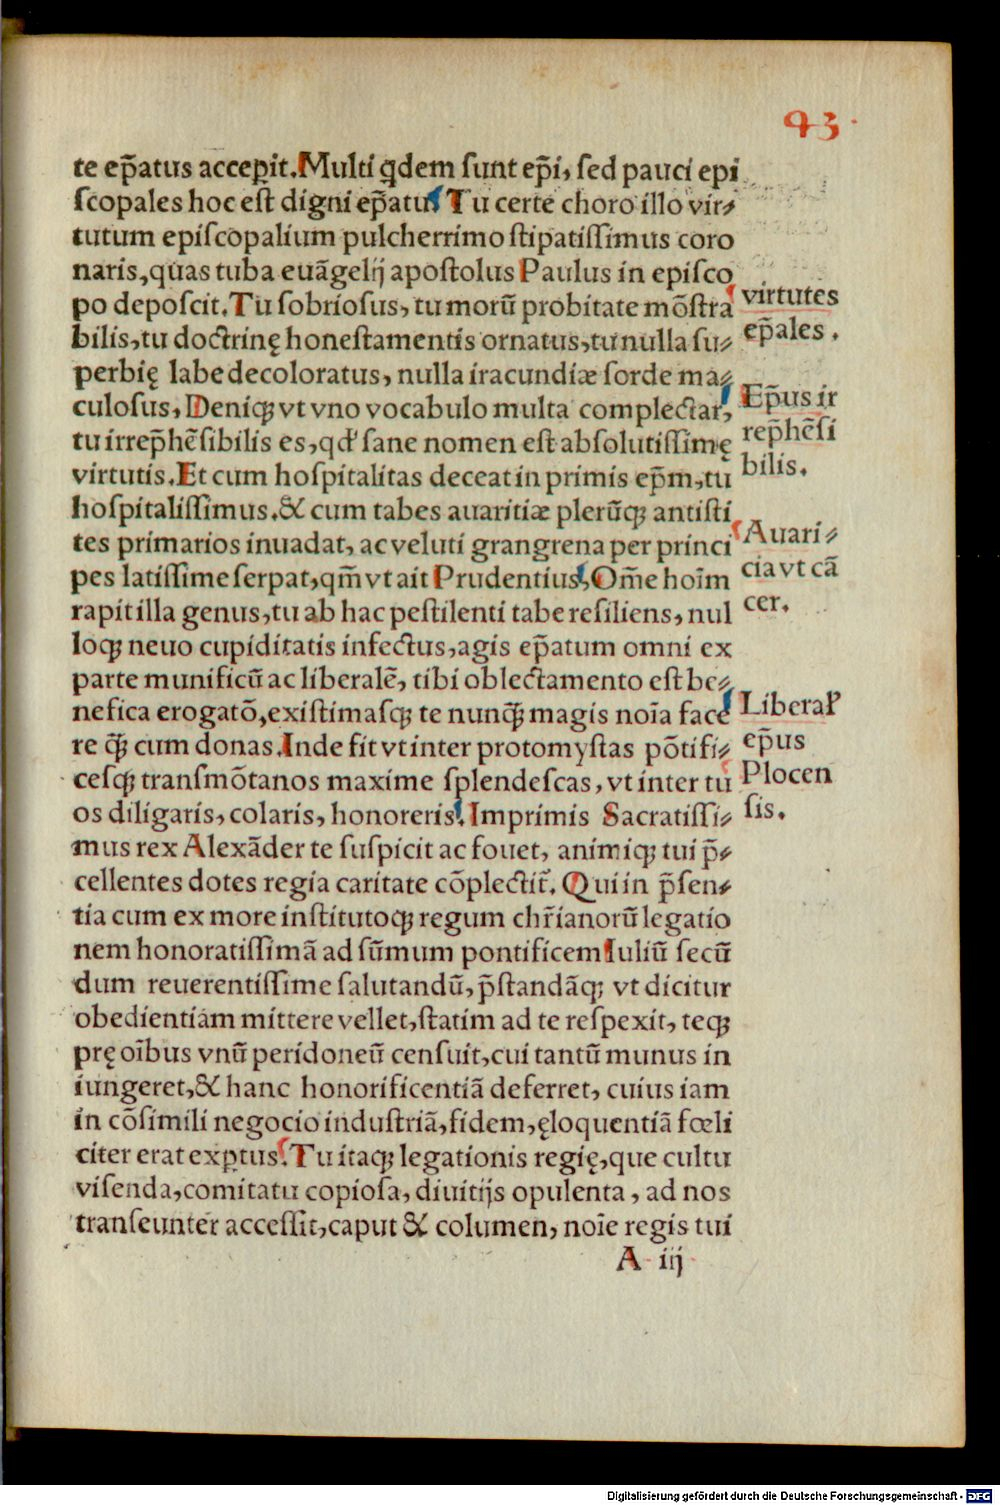 43.
te ep̄atus accepit. Multi qdem ſunt ep̄i, ſed pauci epi
ſcopales hoc eſt digni ep̄atu. Tu certe choro illo vir⸗
tutum epiſcopalium pulcherrimo ſtipatiſſimus coro
naris, quas tuba euāgelij apoſtolus Paulus in epiſco
po depoſcit. Tu ſobrioſus, tu morū probitate mōſtra
bilis, tu doctrinę honeſtamentis ornatus, tu nulla ſu⸗
perbię labe decoloratus, nulla iracundiæ ſorde ma⸗
culoſus, Deniqꝫ vt vno vocabulo multa complectar,
tu irrep̄hēſibilis es, qd' ſane nomen eſt abſolutiſſimę
virtutis. Et cum hoſpitalitas deceat in primis ep̄m, tu
hoſpitaliſſimus. & cum tabes auaritiæ plerūqꝫ antiſti
tes primarios inuadat, ac veluti grangrena per princi
pes latiſſime ſerpat, qm̄ vt ait Prudentius, Om̄e hoīm
rapit illa genus, tu ab hac peſtilenti tabe reſiliens, nul
loqꝫ neuo cupiditatis infectus, agis ep̄atum omni ex
parte munificū ac liberalē, tibi oblectamento eſt be⸗
nefica erogatō, exiſtimaſqꝫ te nunꝙ̄ magis noīa face
re ꝙ̄ cum donas. Inde fit vt inter protomyſtas pōtifi⸗
ceſqꝫ tranſmōtanos maxime ſplendeſcas, vt inter tu
os diligaris, colaris, honoreris. Imprimis Sacratiſſi⸗
mus rex Alexāder te ſuſpicit ac fouet, animiqꝫ tui p̄⸗
cellentes dotes regia caritate cōplectit᷑. Qui in p̄ſen⸗
tia cum ex more inſtitutoqꝫ regum chr̄ianorū legatio
nem honoratiſſimā ad ſūmum pontificem Iuliū ſecū
dum reuerentiſſime ſalutandū, p̄ſtandāqꝫ vt dicitur
obedientiam mittere vellet, ſtatim ad te reſpexit, teqꝫ
prę oībus vnū peridoneū cenſuit, cui tantū munus in
iungeret, & hanc honorificentiā deferret, cuius iam
in cōſimili negocio induſtriā, fidem, ęloquentiā fœli
citer erat exꝑtus. Tu itaqꝫ legationis regię, que cultu
viſenda, comitatu copioſa, diuitijs opulenta, ad nos
tranſeunter acceſſit, caput & columen, noīe regis tui
A iij
virtutes
ep̄ales.
Ep̄us ir
rep̄hēſi
bilis.
Auari⸗
cia vt cā
cer.
Liberal'
ep̄us
Plocen
ſis.
Digitalisierung gefördert durch die Deutsche Forschungsgemeinschaft - DFG